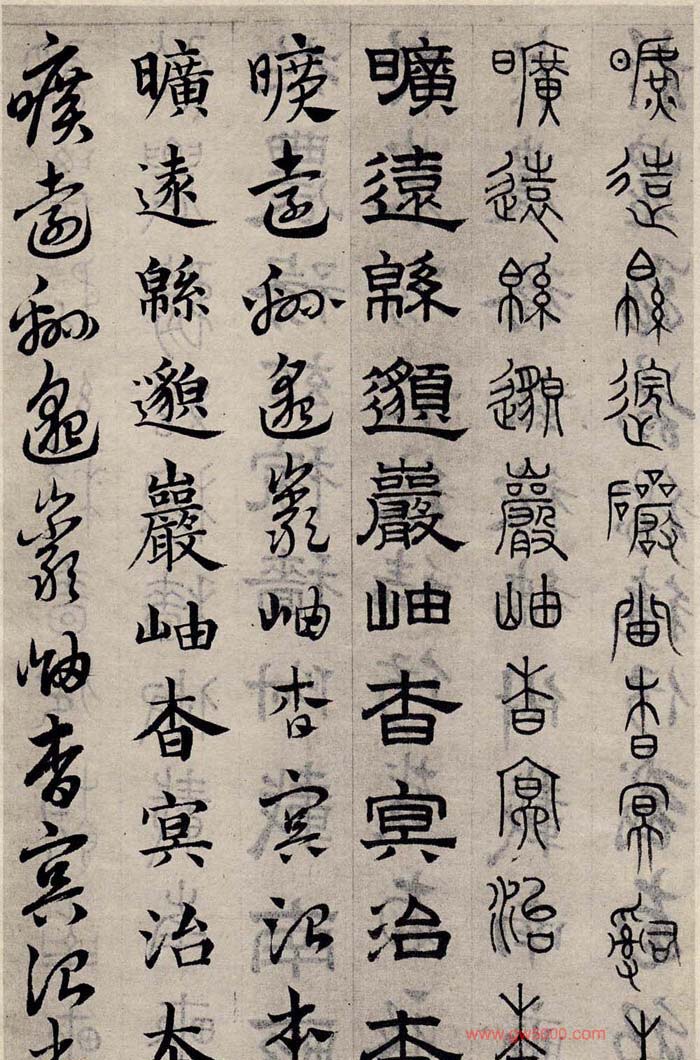 曠遠緜邈巖岫杳冥治本
曠遠緜邈巖岫杳冥治本
曠遠緜邈巖岫杳冥治本
曠遠緜邈巖岫杳冥治本
曠遠緜邈巖岫杳冥治本
曠遠緜邈巖岫杳冥治本
www.gw5000.com